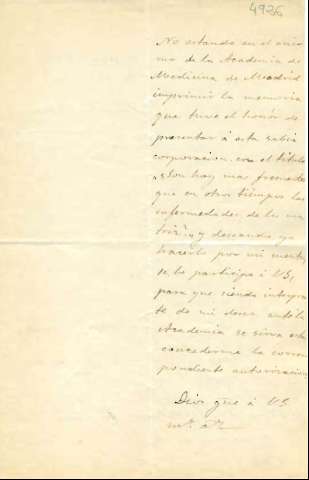 4936
No estando en el áni-
mo de la Academia de
Medicina de Madrid
imprimir la memoria
que tuve el honor de
presentar á esta sabia
corporacion con el título
"¿Son hoy mas frecuentes
que en otro tiempo las
enfermedades de la ma
triz?", y deseando yo
hacerlo por mi cuenta,
se lo participo á VS,
para que siendo intérpre
te de mi deseo ante la
Academia se sirva esta
concederme la corres
pondiente autorizacion
Dios gue á VS
ms. as.